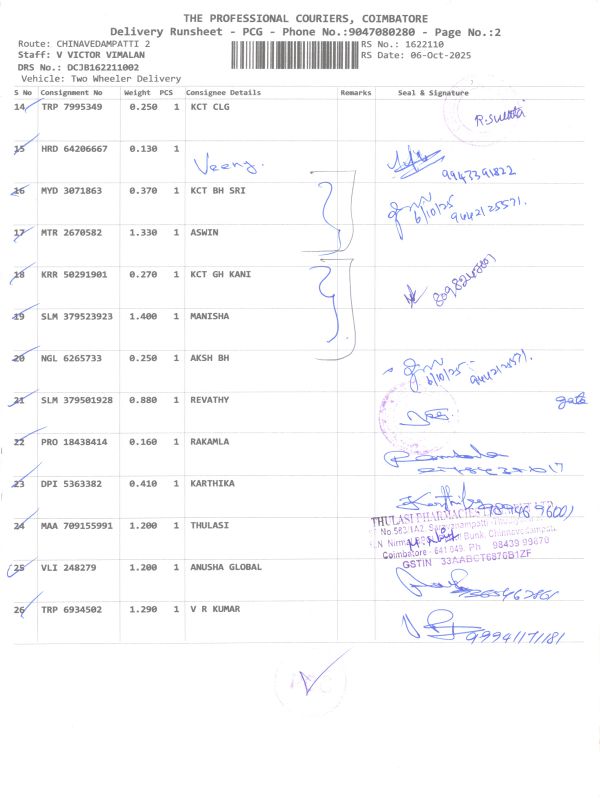 THE PROFESSIONAL COURIERS, COIMBATORE
Delivery Runsheet - PCG - Phone No.:9047080280 - Page No.:2
Route: CHINAVEDAMPATTI 2 RS No.: 1622110
Staff: V VICTOR VIMALAN RS Date: 06-Oct-2025
DRS No.: DCJB162211002
Vehicle: Two Wheeler Delivery
S No Consignment No Weight PCS Consignee Details Remarks Seal & Signature
14 TRP 7995349 0.250 1 KCT CLG
15 HRD 64206667 0.130 1 Veena.
9943391822
16 MYD 3071863 0.370 1 KCT BH SRI
6/10/25 9442125571.
17 MTR 2670582 1.330 1 ASWIN
18 KRR 50291901 0.270 1 KCT GH KANI
19 SLM 379523923 1.400 1 MANISHA
20 NGL 6265733 0.250 1 AKSH BH
6/10/25 9442125571.
21 SLM 379501928 0.880 1 REVATHY
gate
22 PRO 18438414 0.160 1 RAKAMLA
23 DPI 5363382 0.410 1 KARTHIKA Karthika
24 MAA 709155991 1.200 1 THULASI
THULASI PHARMACIES
Coimbatore - 641 049. Ph : 98439 99878
GSTIN 33AABCT6876B1ZF
25 VLI 248279 1.200 1 ANUSHA GLOBAL
26 TRP 6934502 1.290 1 V R KUMAR
9994117181